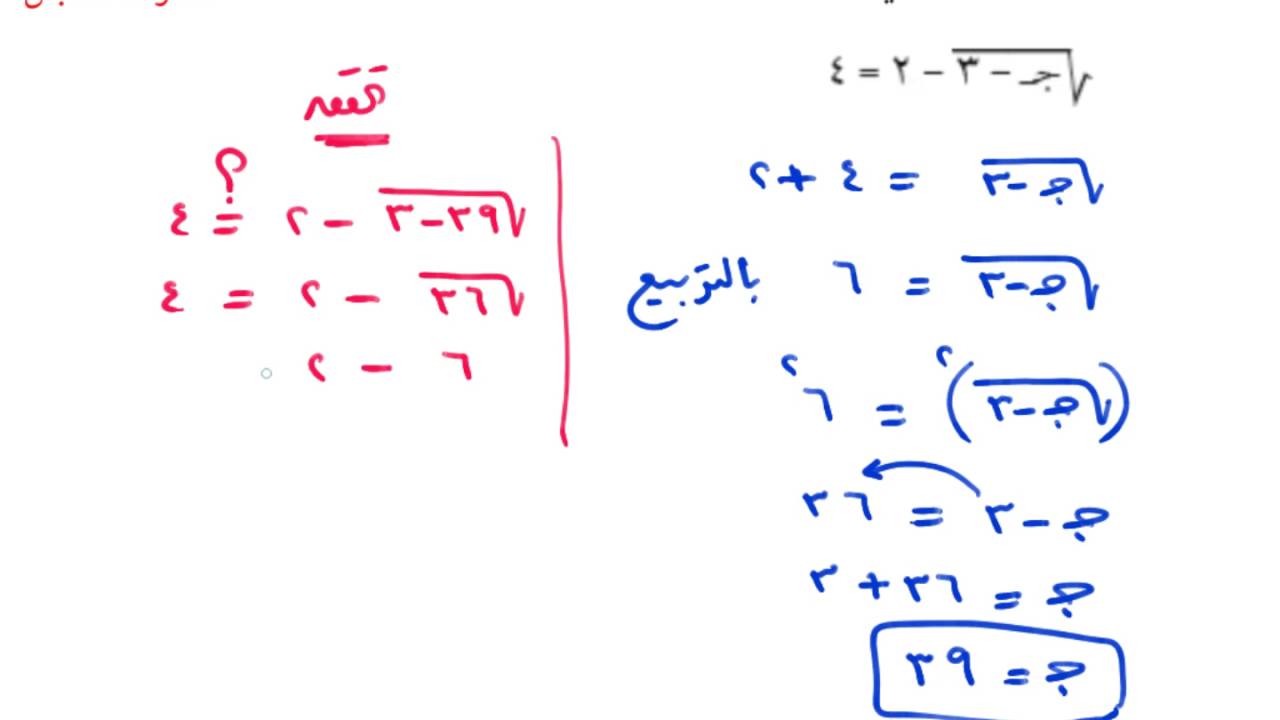 √(جـ − ٣) − ٢ = ٤
√(جـ − ٣) = ٤ + ٢
√(جـ − ٣) = ٦ بالتربيع
(√(جـ − ٣))^٢ = ٦^٢
جـ − ٣ = ٣٦
جـ = ٣٦ + ٣
جـ = ٣٩
تحقق
√(٣٩ − ٣) − ٢ =؟ ٤
√٣٦ − ٢ = ٤
٦ − ٢